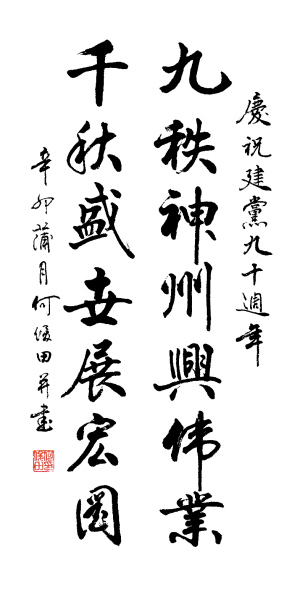 慶祝建黨九十週年
九秩神州興伟業
千秋盛世展宏图
辛卯蒲月何俊田并書